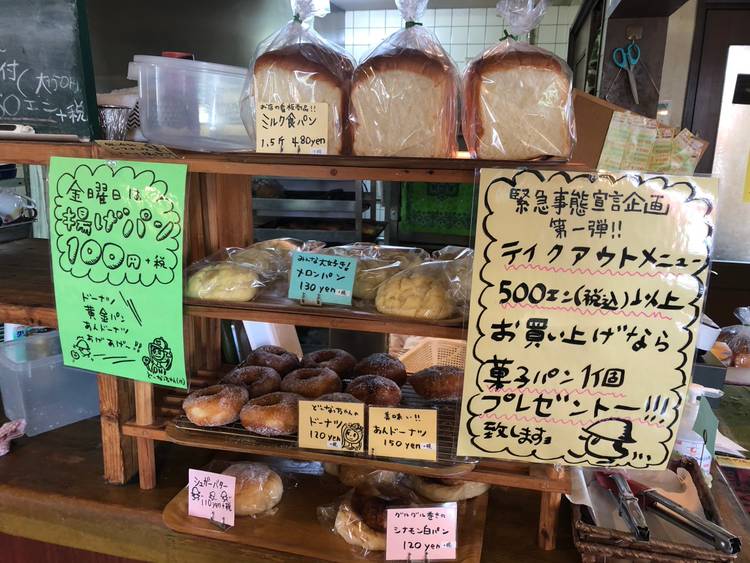 お店の看板商品!!
ミルク食パン
1.5斤 480yen
金曜日は
揚げパン
100円+税
ドーナツ
黄金パン
あんドーナツ
あげあげ〜!!
みんな大好き!
メロンパン
130yen +税
緊急事態宣言企画
第一弾!!
テイクアウトメニュー
500エン(税込)以上
お買い上げなら
菓子パン1個
プレゼントー!!!
致します。
ドーナツ
120yen +税
美味い!!
あんドーナツ
150yen +税
シュガーバター
110yen+税
グルグル巻きの
シナモン白パン
120yen +税